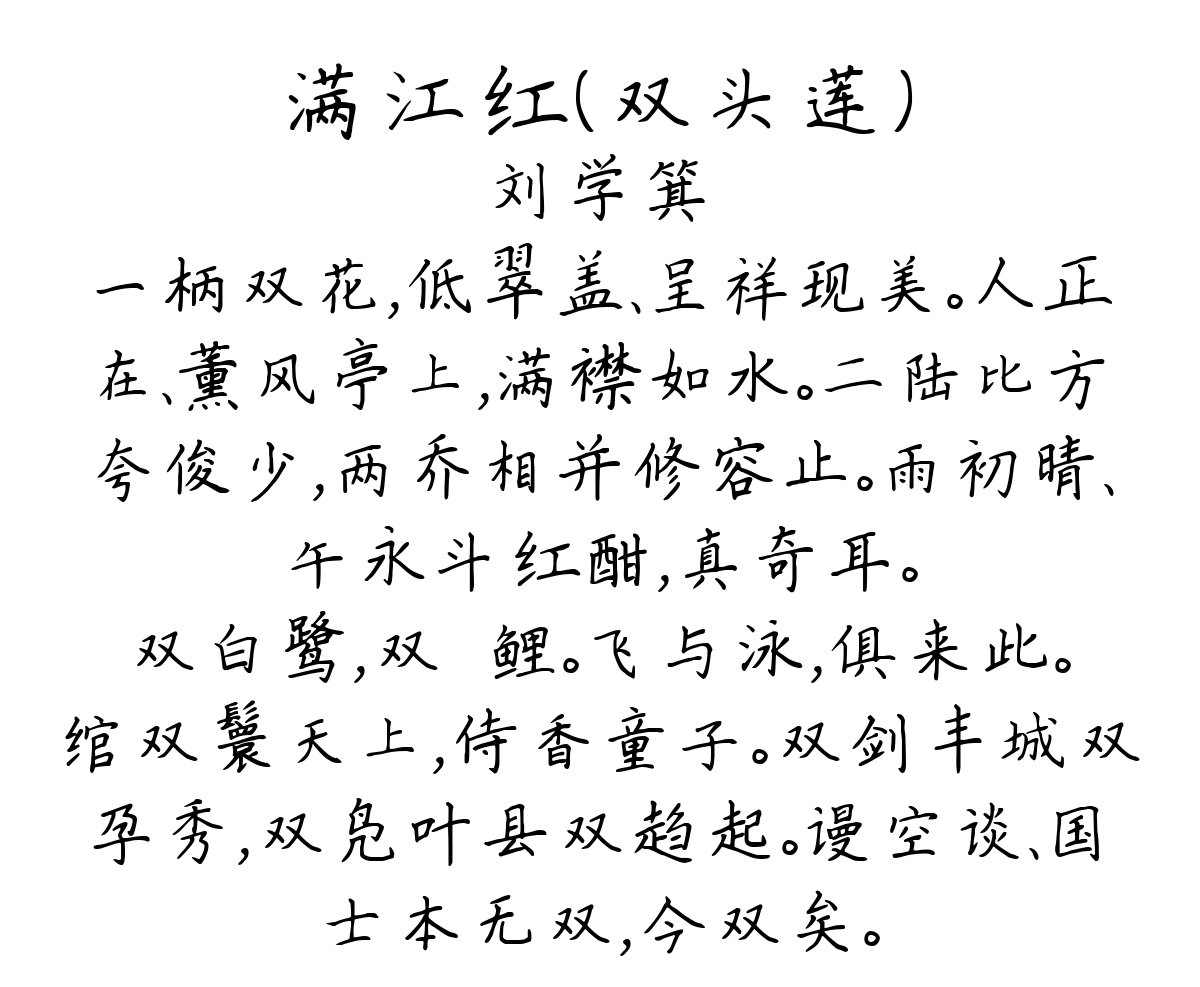 满江红(双头莲)
刘学箕
一柄双花,低翠盖、呈祥现美。人正
在、薰风亭上,满襟如水。二陆比方
夸俊少,两乔相并修容止。雨初晴、
午永斗红酣,真奇耳。
双白鹭,双 鲤。飞与泳,俱来此。
绾双鬟天上,侍香童子。双剑丰城双
孕秀,双凫叶县双趋起。谩空谈、国
士本无双,今双矣。